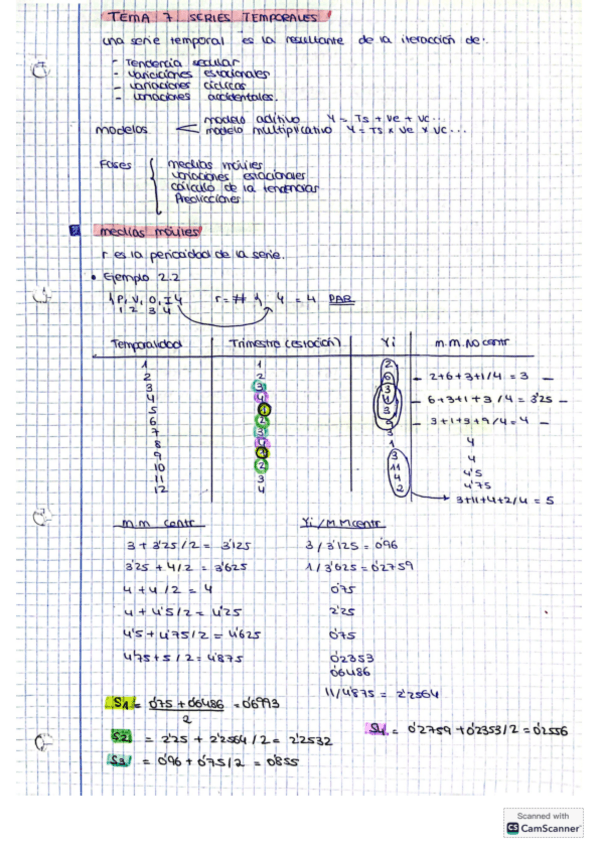 TEMA 7 SERIES TEMPORALES
una serie temporal es la resultante de la iteracción de:
- Tendencia secular
- variaciones estacionales
- variaciones cíclicas
- variaciones accidentales.
modelos
modelo aditivo Y = Ts + Ve + Vc...
modelo multiplicativo Y = Ts x Ve x Vc...
Fases
medias móviles
variaciones estacionales
cálculo de la tendencias
Predicciones
medias móviles
r es la pericidad de la serie.
• Ejemplo 2.2
{P, V, O, I} r = # { 4 = 4 PAR
1 2 3 4
Temporalidad Trimestre (estación) Yi m.m. No centr
1 1 2
2 2 6 - 2+6+3+1/4 = 3 -
3 3 3
4 4 1 - 6+3+1+3/4 = 3'25 -
5 1 3
6 2 9 - 3+1+3+9/4 = 4 -
7 3 3
8 4 1 4
9 1 3 4
10 2 11 4'5
11 3 4 4'75
12 4 2
3+11+4+2/4 = 5
m.m centr Yi/M.M centr
3 + 3'25/2 = 3'125 3/3'125 = 0'96
3'25 + 4/2 = 3'625 1/3'625 = 0'2759
4 + 4/2 = 4 0'75
4 + 4'5/2 = 4'25 2'25
4'5 + 4'75/2 = 4'625 0'75
4'75 + 5/2 = 4'875 0'2353
0'6486
11/4'875 = 2'2564
S1 = 0'75 + 0'6486 / 2 = 0'6993
S2 = 2'25 + 2'2564/2 = 2'2532
S4 = 0'2759 + 0'2353/2 = 0'2556
S3 = 0'96 + 0'75/2 = 0'855
Scanned with
CS CamScanner